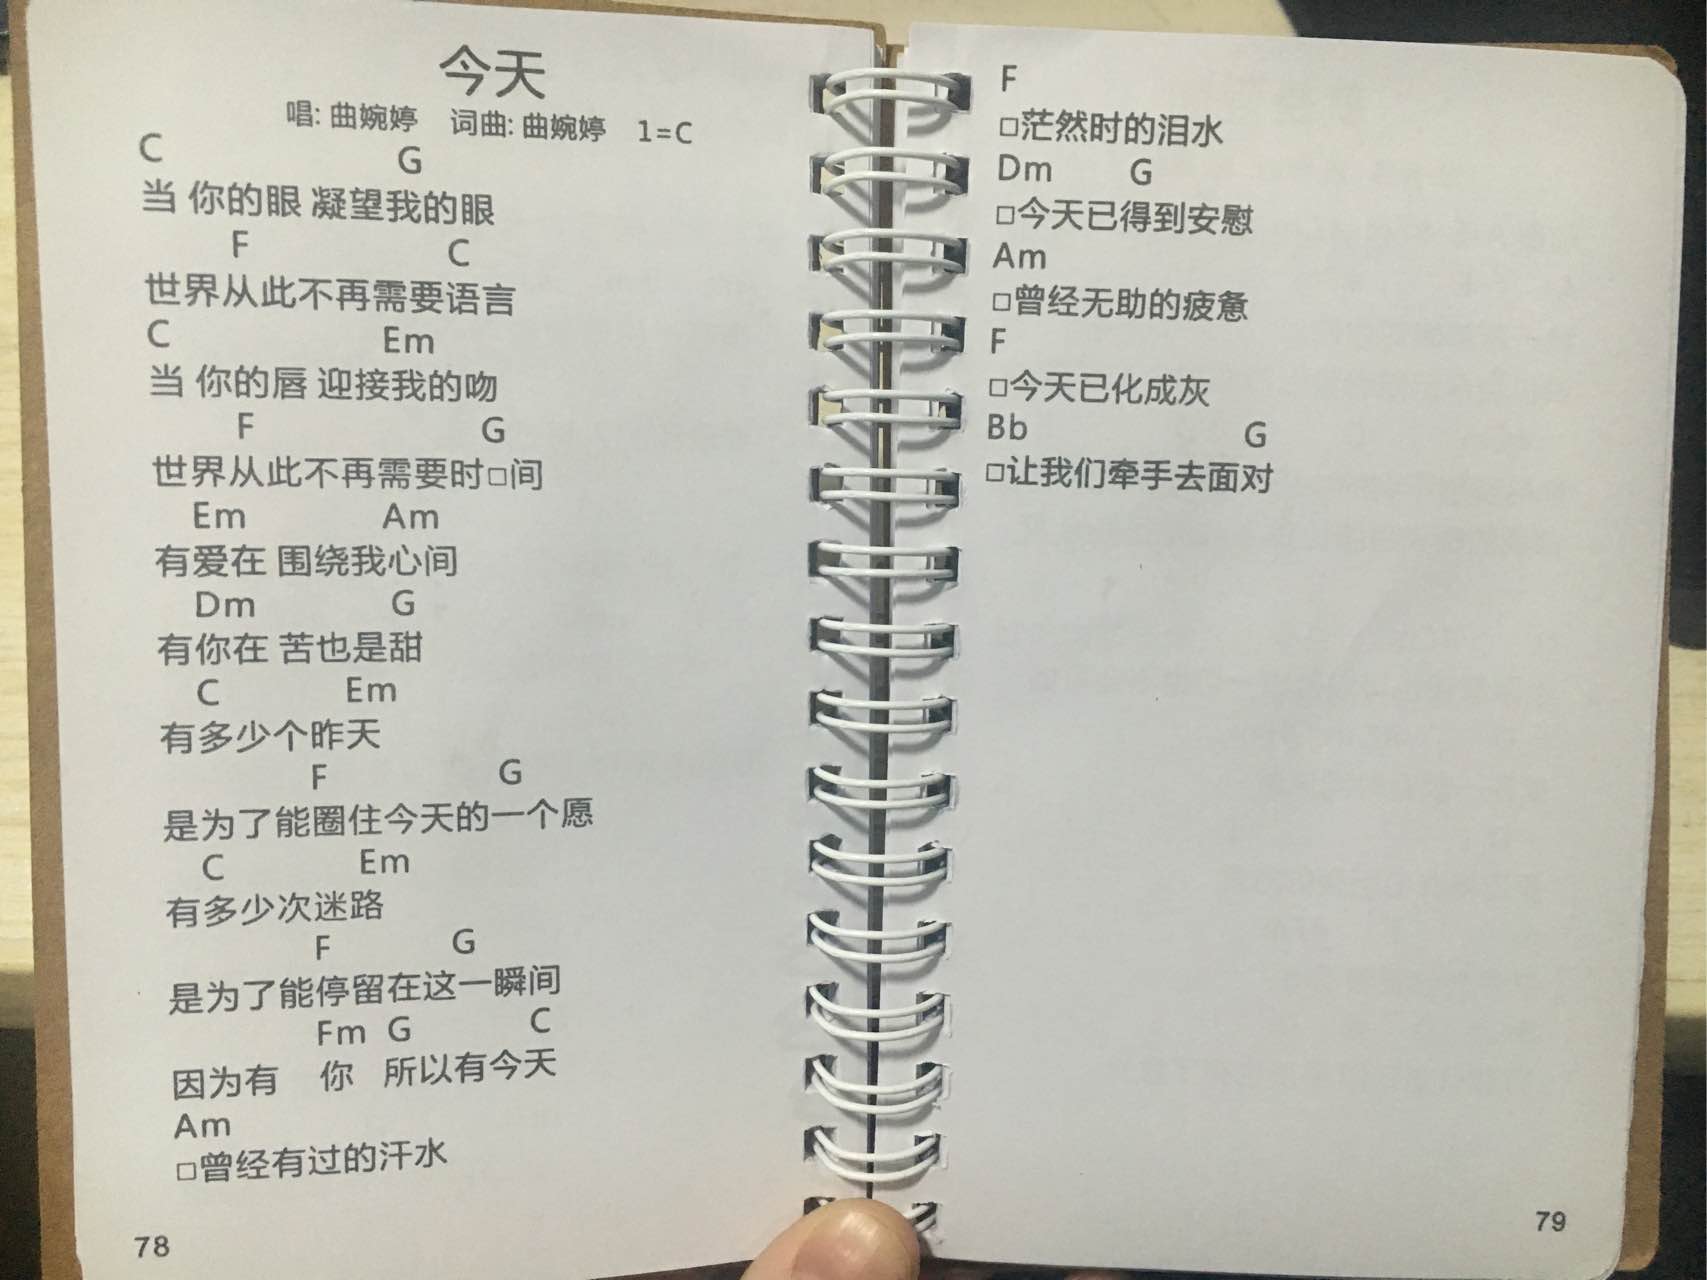 今天
唱: 曲婉婷 词曲: 曲婉婷 1=C
C G
当 你的眼 凝望我的眼
F C
世界从此不再需要语言
C Em
当 你的唇 迎接我的吻
F G
世界从此不再需要时□间
Em Am
有爱在 围绕我心间
Dm G
有你在 苦也是甜
C Em
有多少个昨天
F G
是为了能圈住今天的一个愿
C Em
有多少次迷路
F G
是为了能停留在这一瞬间
Fm G C
因为有 你 所以有今天
Am
□曾经有过的汗水
78
F
□茫然时的泪水
Dm G
□今天已得到安慰
Am
□曾经无助的疲惫
F
□今天已化成灰
Bb G
□让我们牵手去面对
79